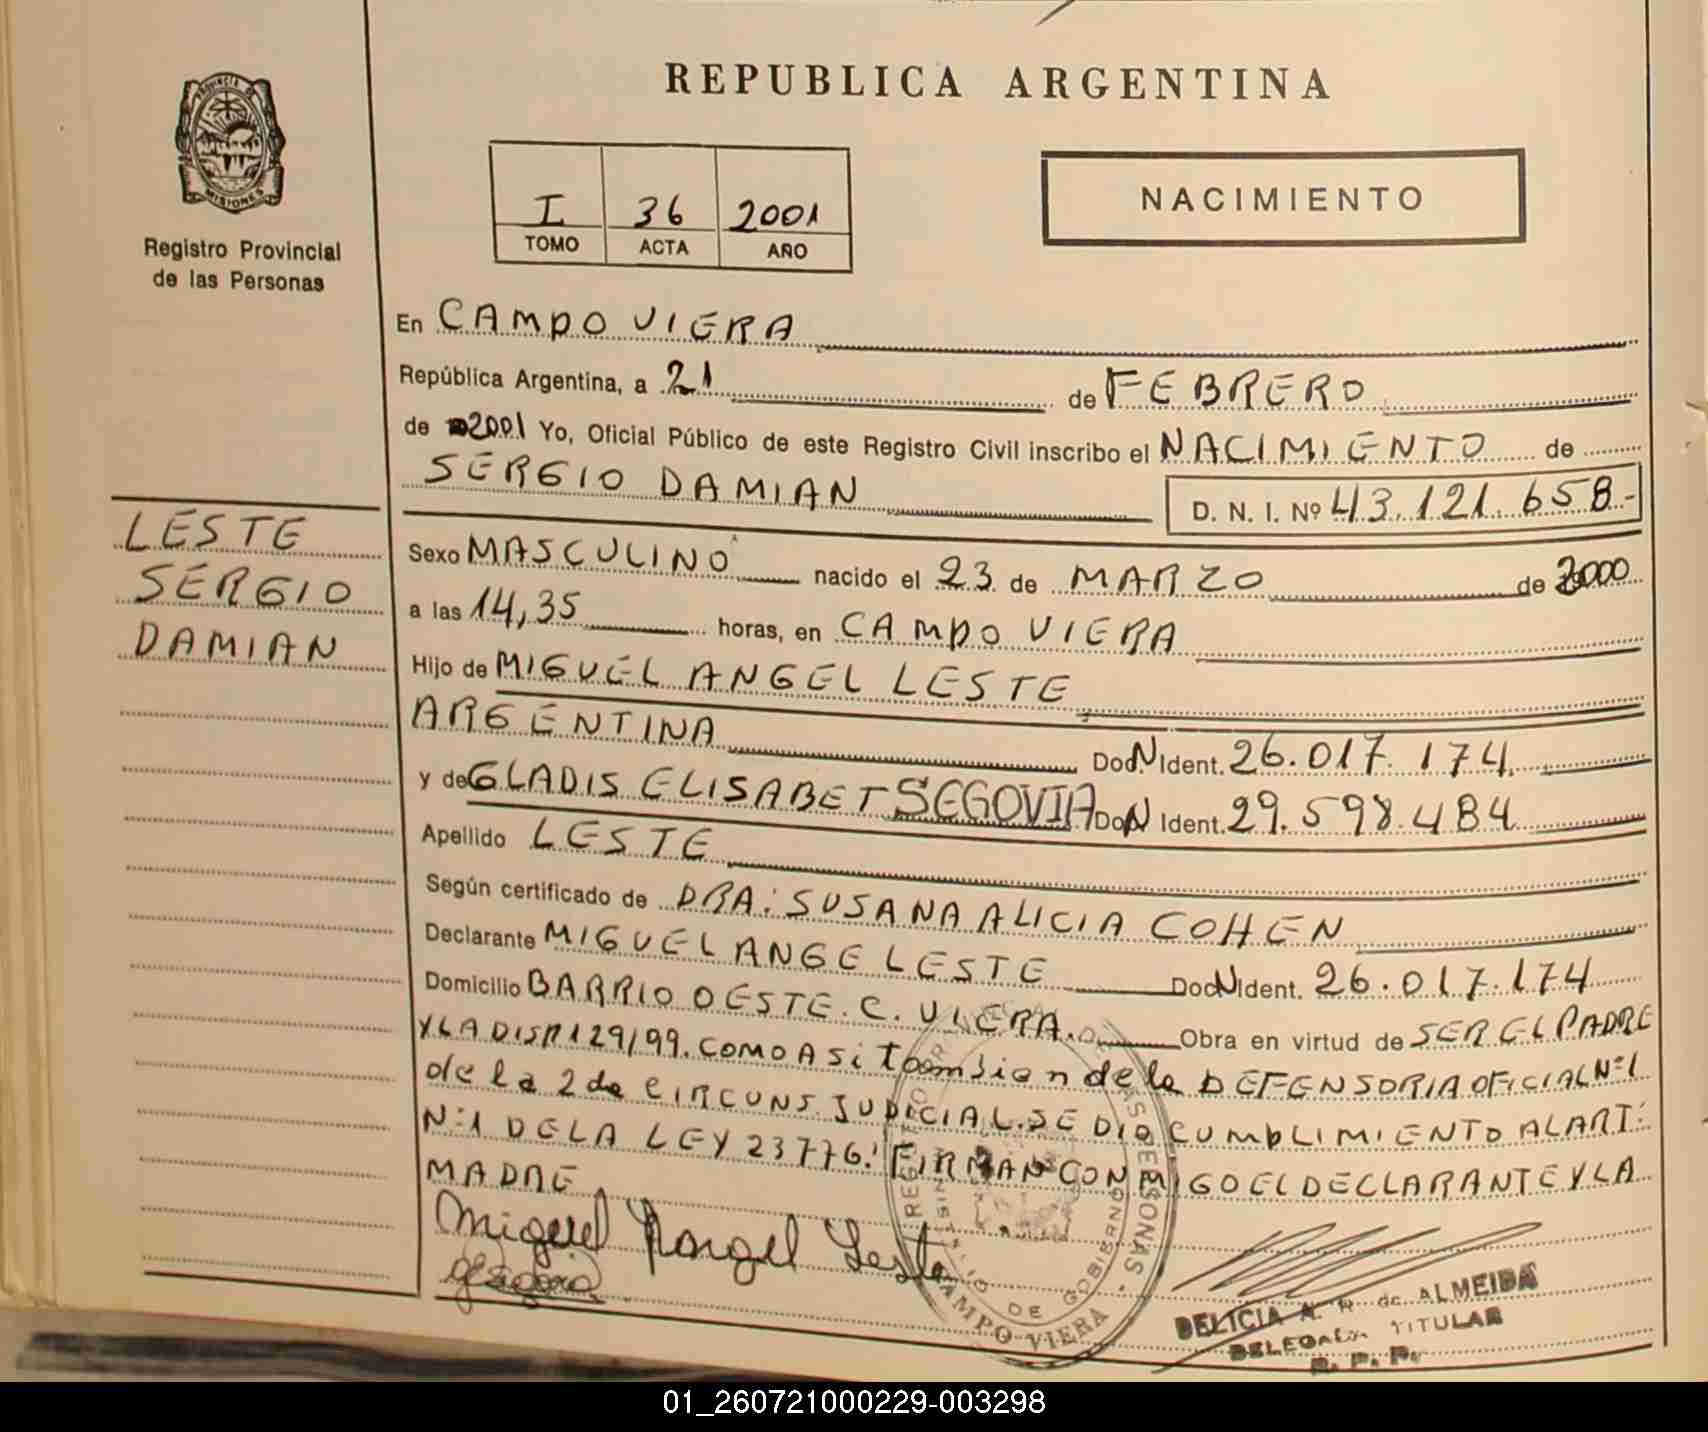 REPUBLICA ARGENTINA
PROVINCIA DE
MISIONES
Registro Provincial
de las Personas
I 36 2001
TOMO ACTA AÑO
NACIMIENTO
En CAMPO VIERA
República Argentina, a 21 de FEBRERO
de 2001 Yo, Oficial Público de este Registro Civil inscribo el NACIMIENTO de
SERGIO DAMIAN D. N. I. Nº 43.121.658.-
LESTE
SERGIO
DAMIAN
Sexo MASCULINO nacido el 23 de MARZO de 2000
a las 14,35 horas, en CAMPO VIERA
Hijo de MIGUEL ANGEL LESTE
ARGENTINA Doc.N Ident. 26.017.174
y de GLADIS ELISABET SEGOVIA Doc.N Ident. 29.598.484
Apellido LESTE
Según certificado de DRA: SUSANA ALICIA COHEN
Declarante MIGUEL ANGE LESTE Doc.N Ident. 26.017.174
Domicilio BARRIO OESTE. C. VIERA. Obra en virtud de SER EL PADRE
Y LA DISP 129/99. COMO ASi TAMBIEN de la DEFENSORIA OFICIAL Nº1
de la 2da CIRCUNS JUDICIAL. SE DIO CUMPLIMIENTO AL ART:
Nº1 DE LA LEY 23776. FIRMAN CON MIGO EL DECLARANTE Y LA
MADRE
Miguel Angel Leste
REGISTRO PROVINCIAL DE LAS PERSONAS
MINISTERIO DE GOBIERNO
CAMPO VIERA
DELICIA A. R. de ALMEIDA
DELEGADA TITULAR
R. P. P.
01_260721000229-003298